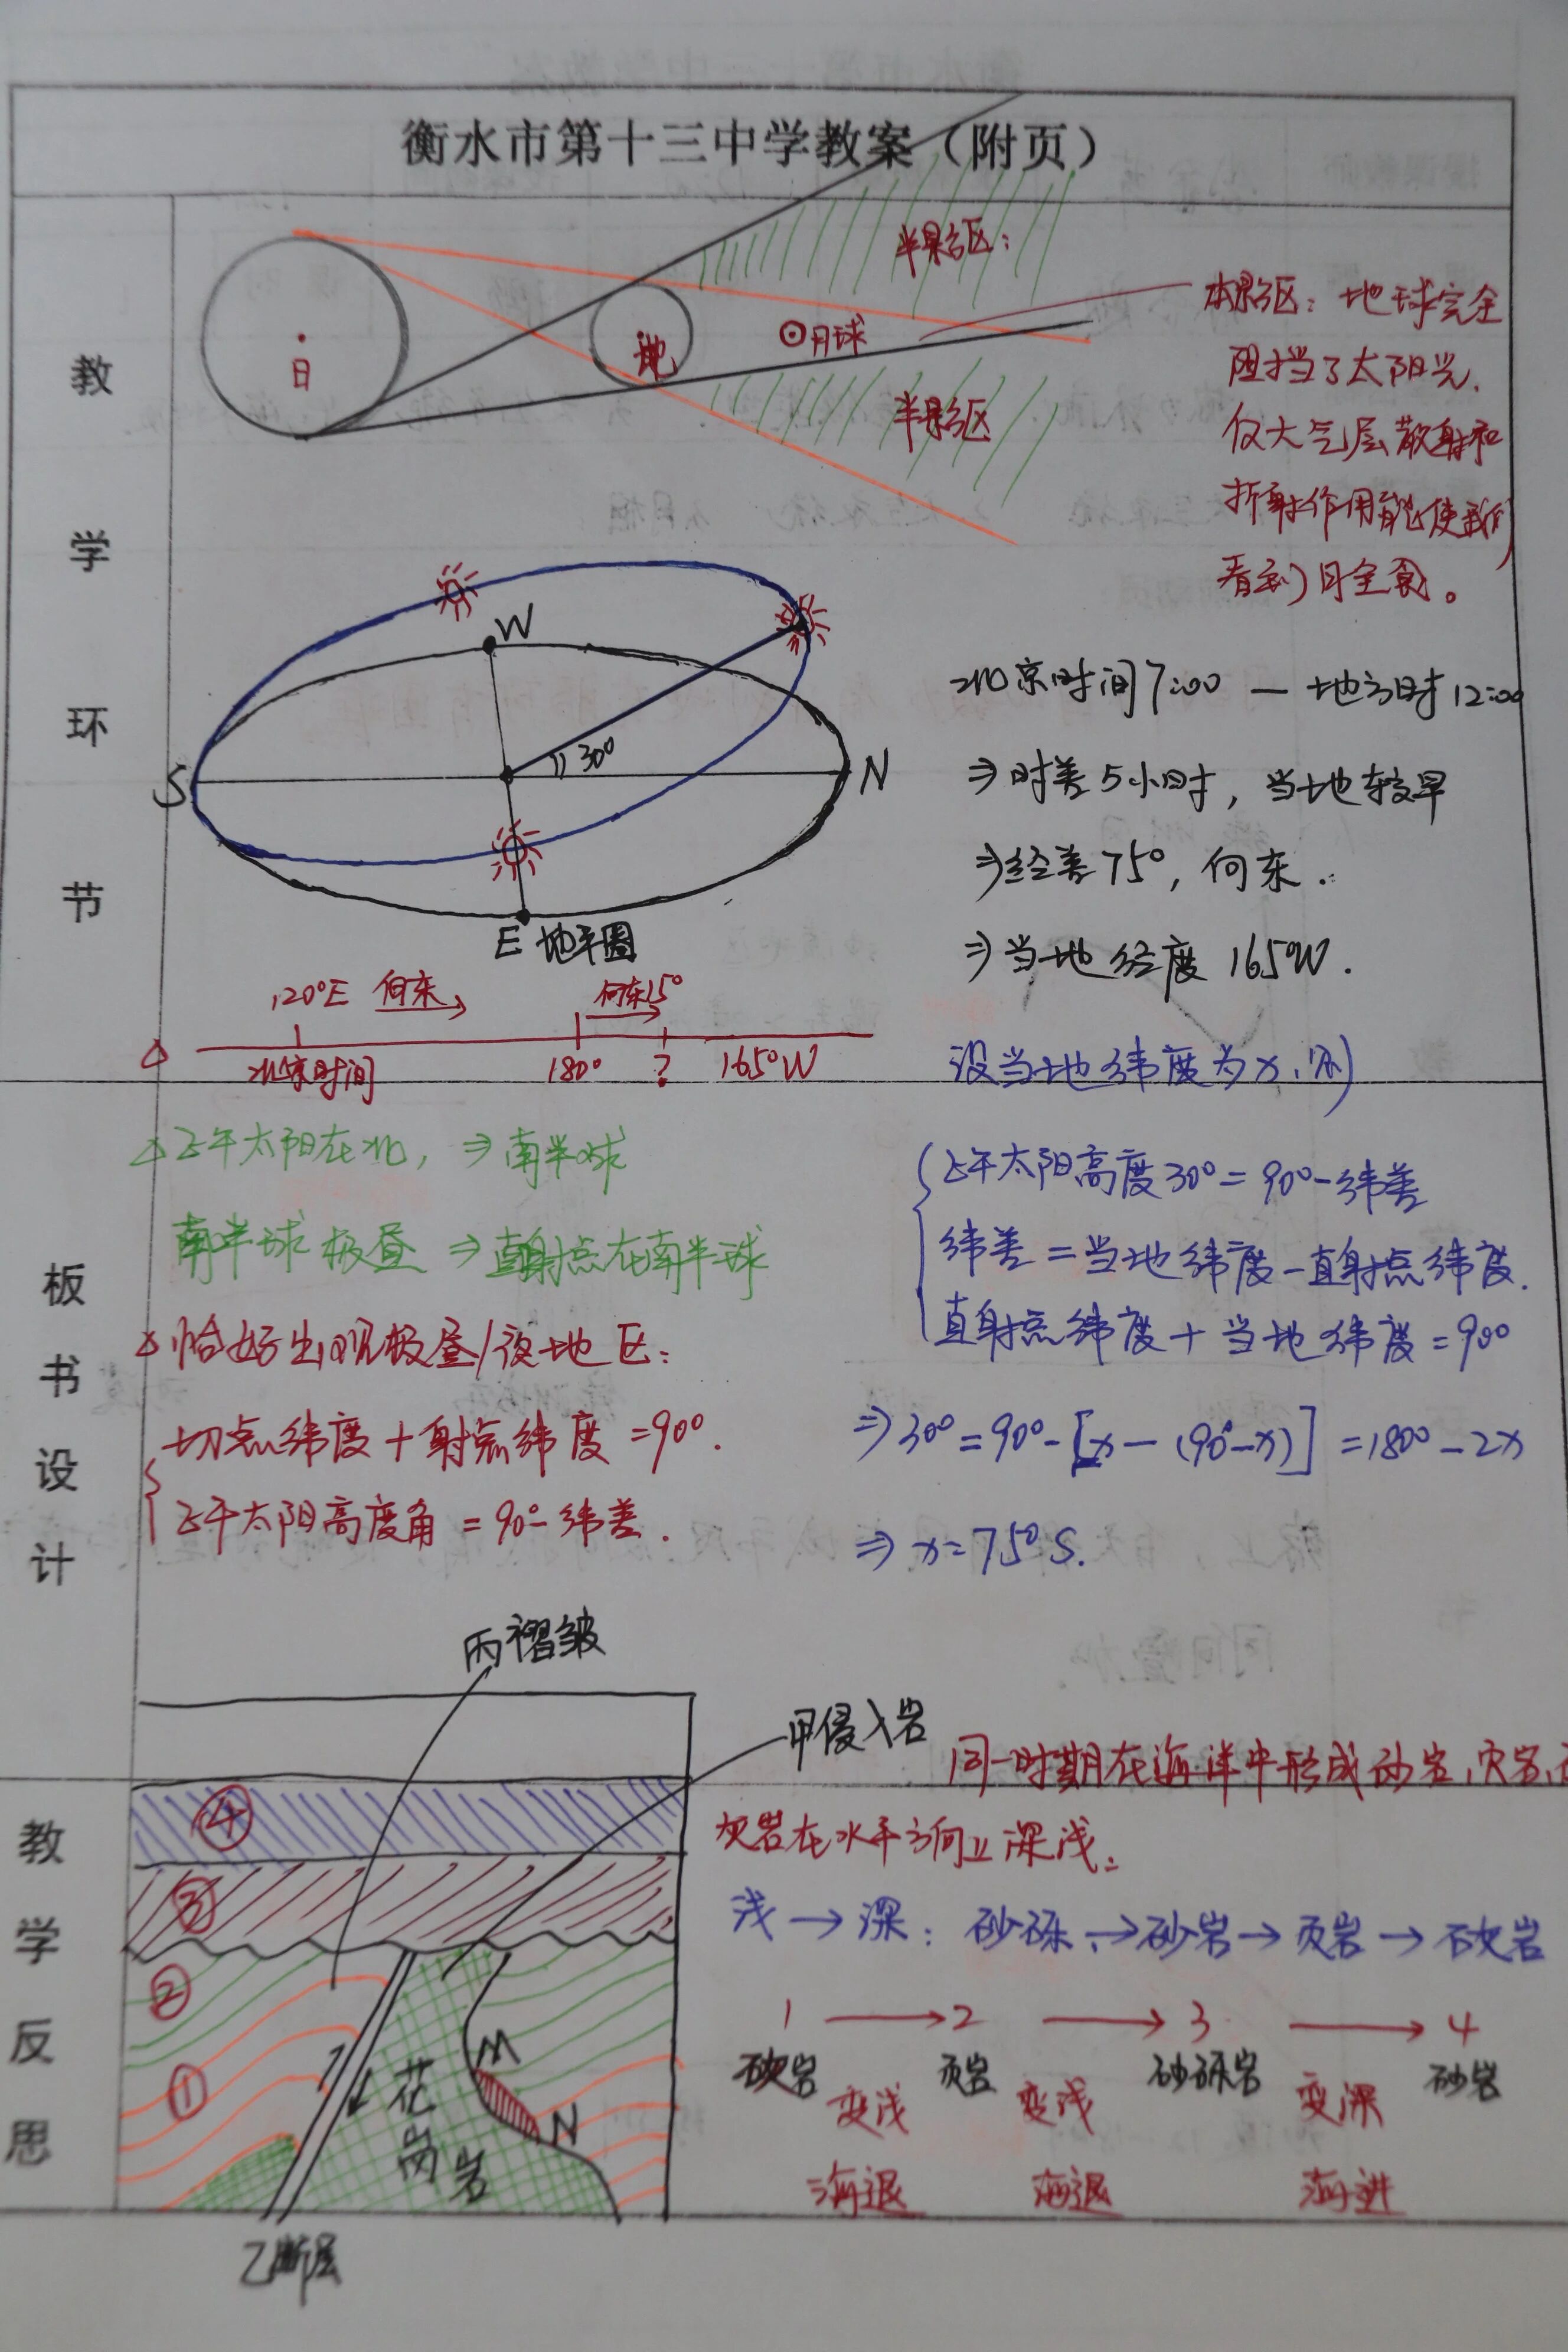 衡水市第十三中学教案（附页）
教学环节
半影区：
日
地
月球
半影区
本影区：地球完全
阻挡了太阳光，
仅大气层散射和
折射作用能使我们
看到月全食。
W
30°
S
N
E 地平圈
北京时间7:00 — 地方时12:00
⇒时差5小时，当地较早
⇒经差75°，向东．
⇒当地经度165°W．
120°E 向东
向东15°
北京时间 180° ? 165°W
设当地纬度为x，则
板书设计
△正午太阳在北，⇒南半球
南半球极昼⇒直射点在南半球
△恰好出现极昼/夜地区：
切点纬度＋射点纬度＝90°．
正午太阳高度角＝90°－纬差．
正午太阳高度30°＝90°－纬差
纬差＝当地纬度－直射点纬度．
直射点纬度＋当地纬度＝90°
⇒30°＝90°－[x－(90°－x)]＝180°－2x
⇒x＝75°S．
丙褶皱
甲侵入岩
教学反思
④
③
②
①
M
N
花岗岩
乙断层
同一时期在海洋中形成砂岩，灰岩，
灰岩在水平方向上深浅：
浅→深：砂砾→砂岩→页岩→石灰岩
1 → 2 → 3 → 4
石灰岩 页岩 砂砾岩 砂岩
变浅 变浅 变深
海退 海退 海进